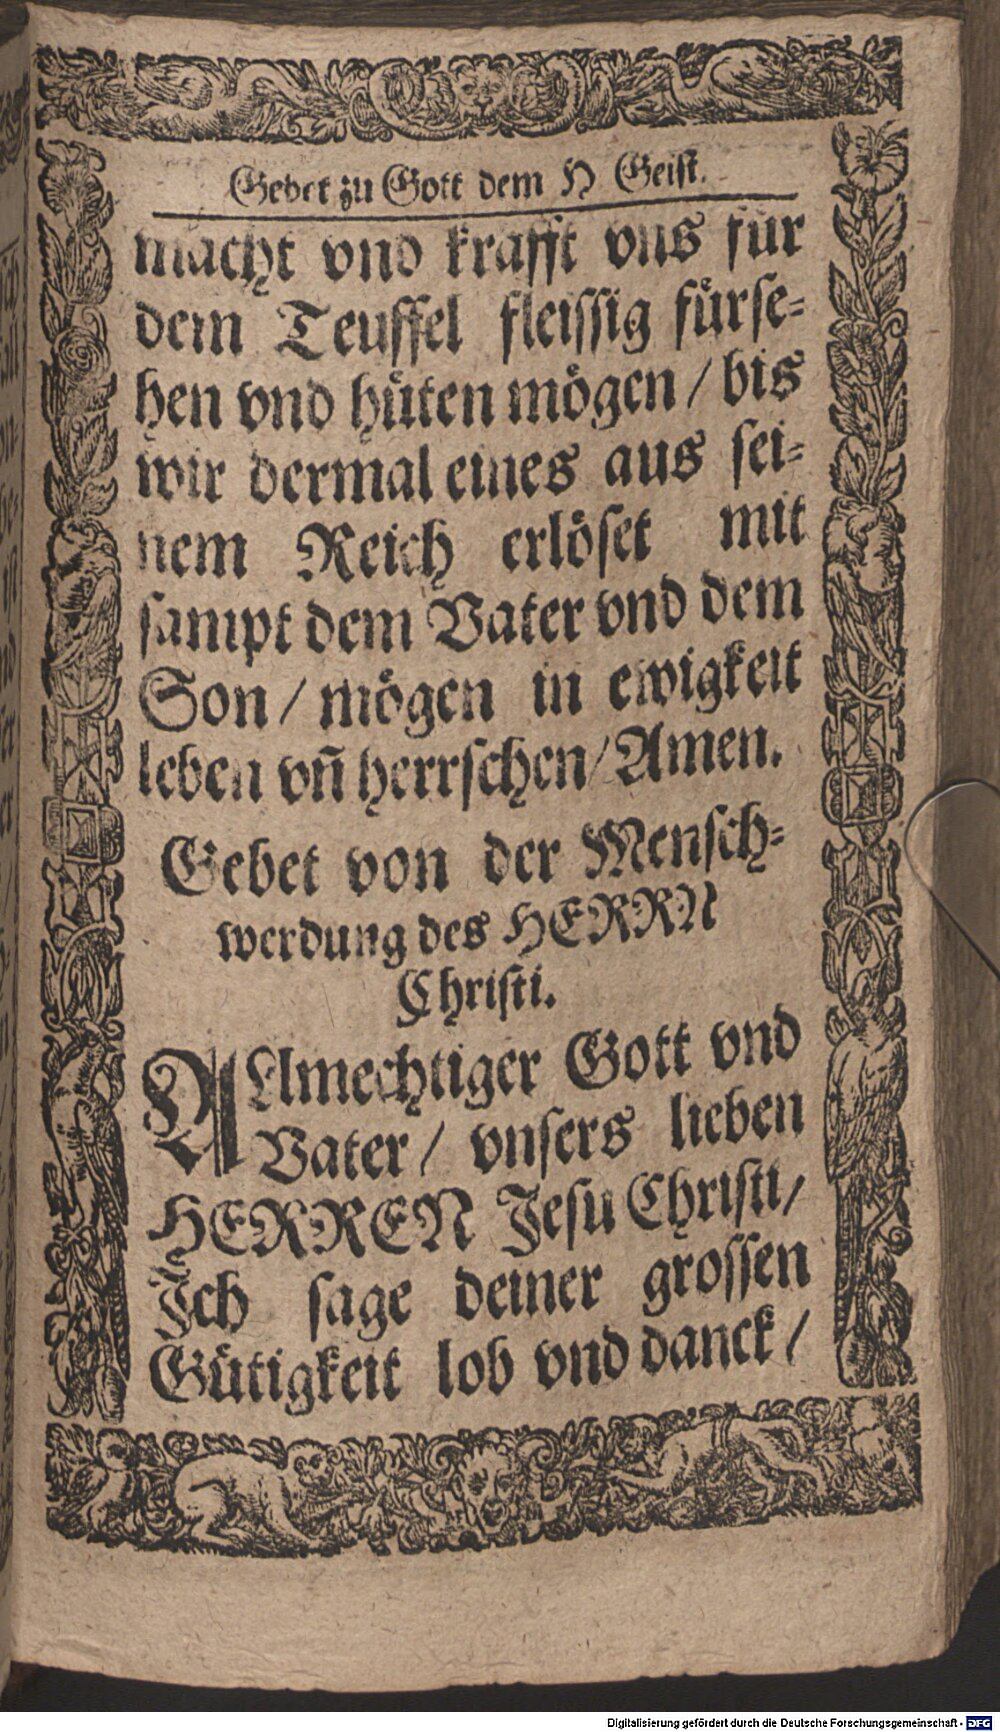 Gebet zu Gott dem H Geist.
macht vnd krafft vns für
dem Teuffel fleissig fürse-
hen vnd hüten mögen / bis
wir dermal eines aus sei-
nem Reich erlöset mit
sampt dem Vater vnd dem
Son / mögen in ewigkeit
leben vñ herrschen / Amen.
Gebet von der Mensch-
werdung des HERRN
Christi.
ALmechtiger Gott vnd
Vater / vnsers lieben
HERREN Jesu Christi /
Ich sage deiner grossen
Gütigkeit lob vnd danck /
Digitalisierung gefördert durch die Deutsche Forschungsgemeinschaft - DFG